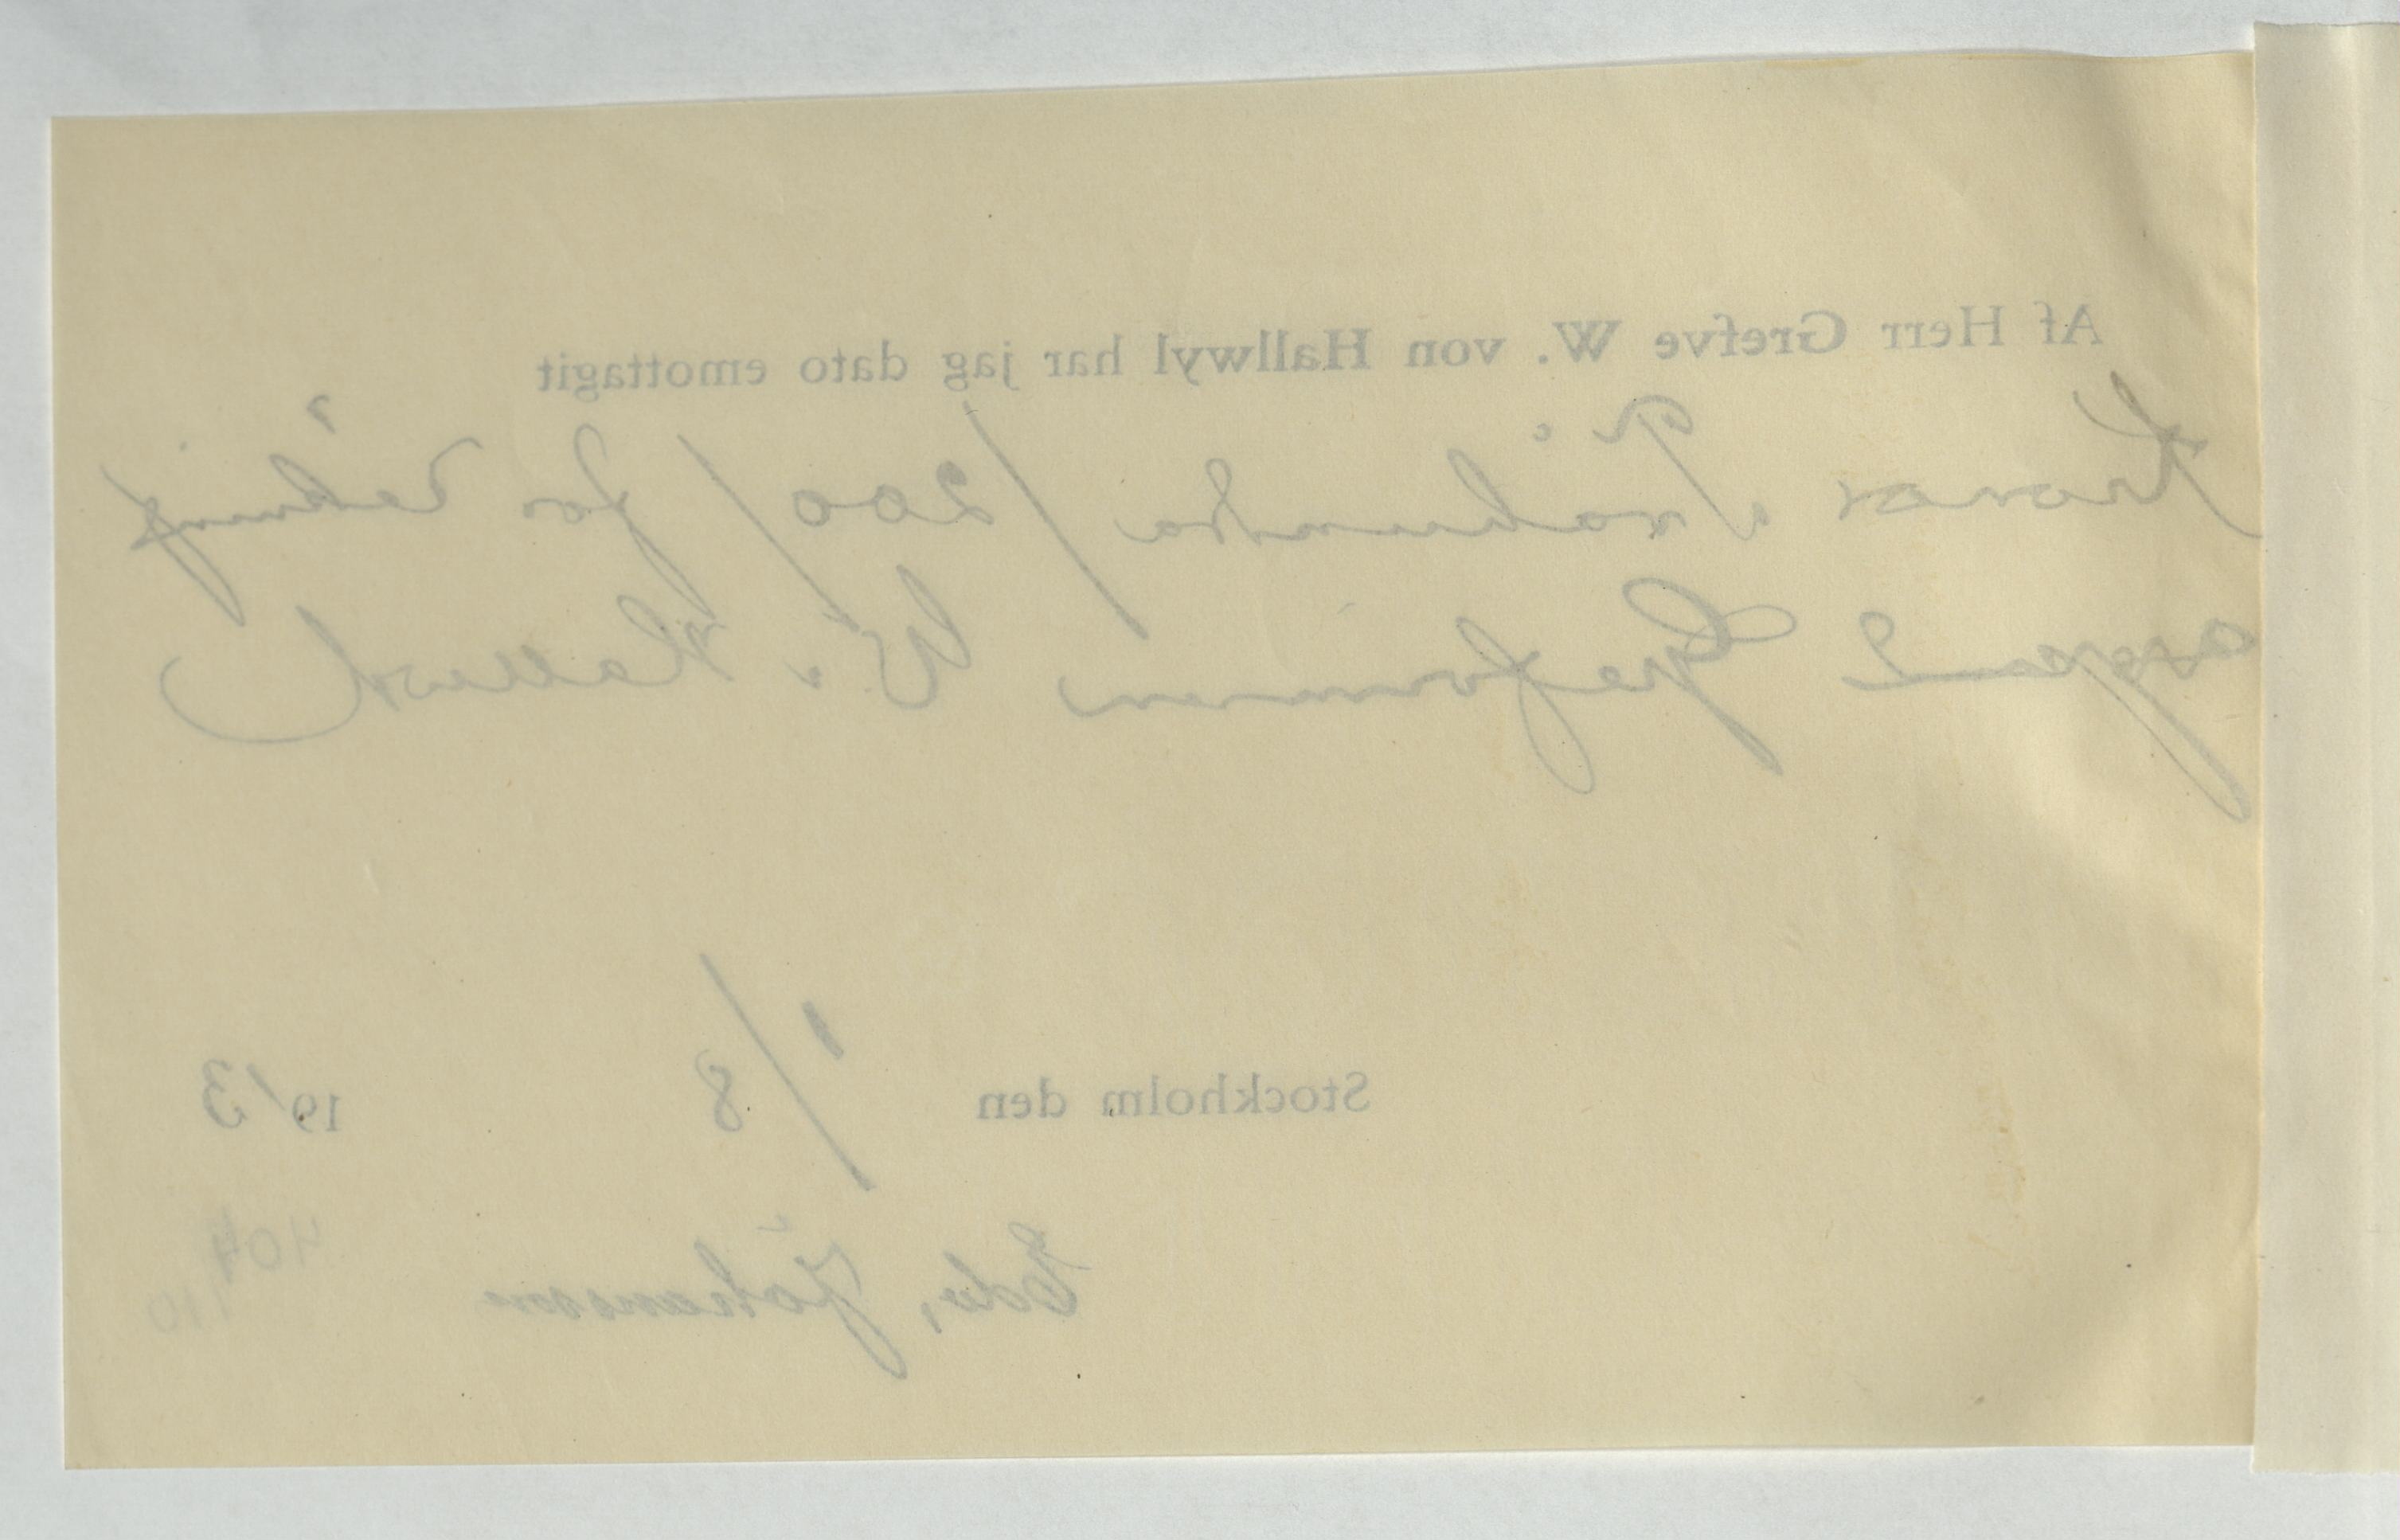 Af Herr Grefve W. von Hallwyl har jag dato emottagit
Kronor Tvåhundra /200/ för räkning
Grefvinnan W.
Stockholm den 1/8 1913
Edv. Johansson
404